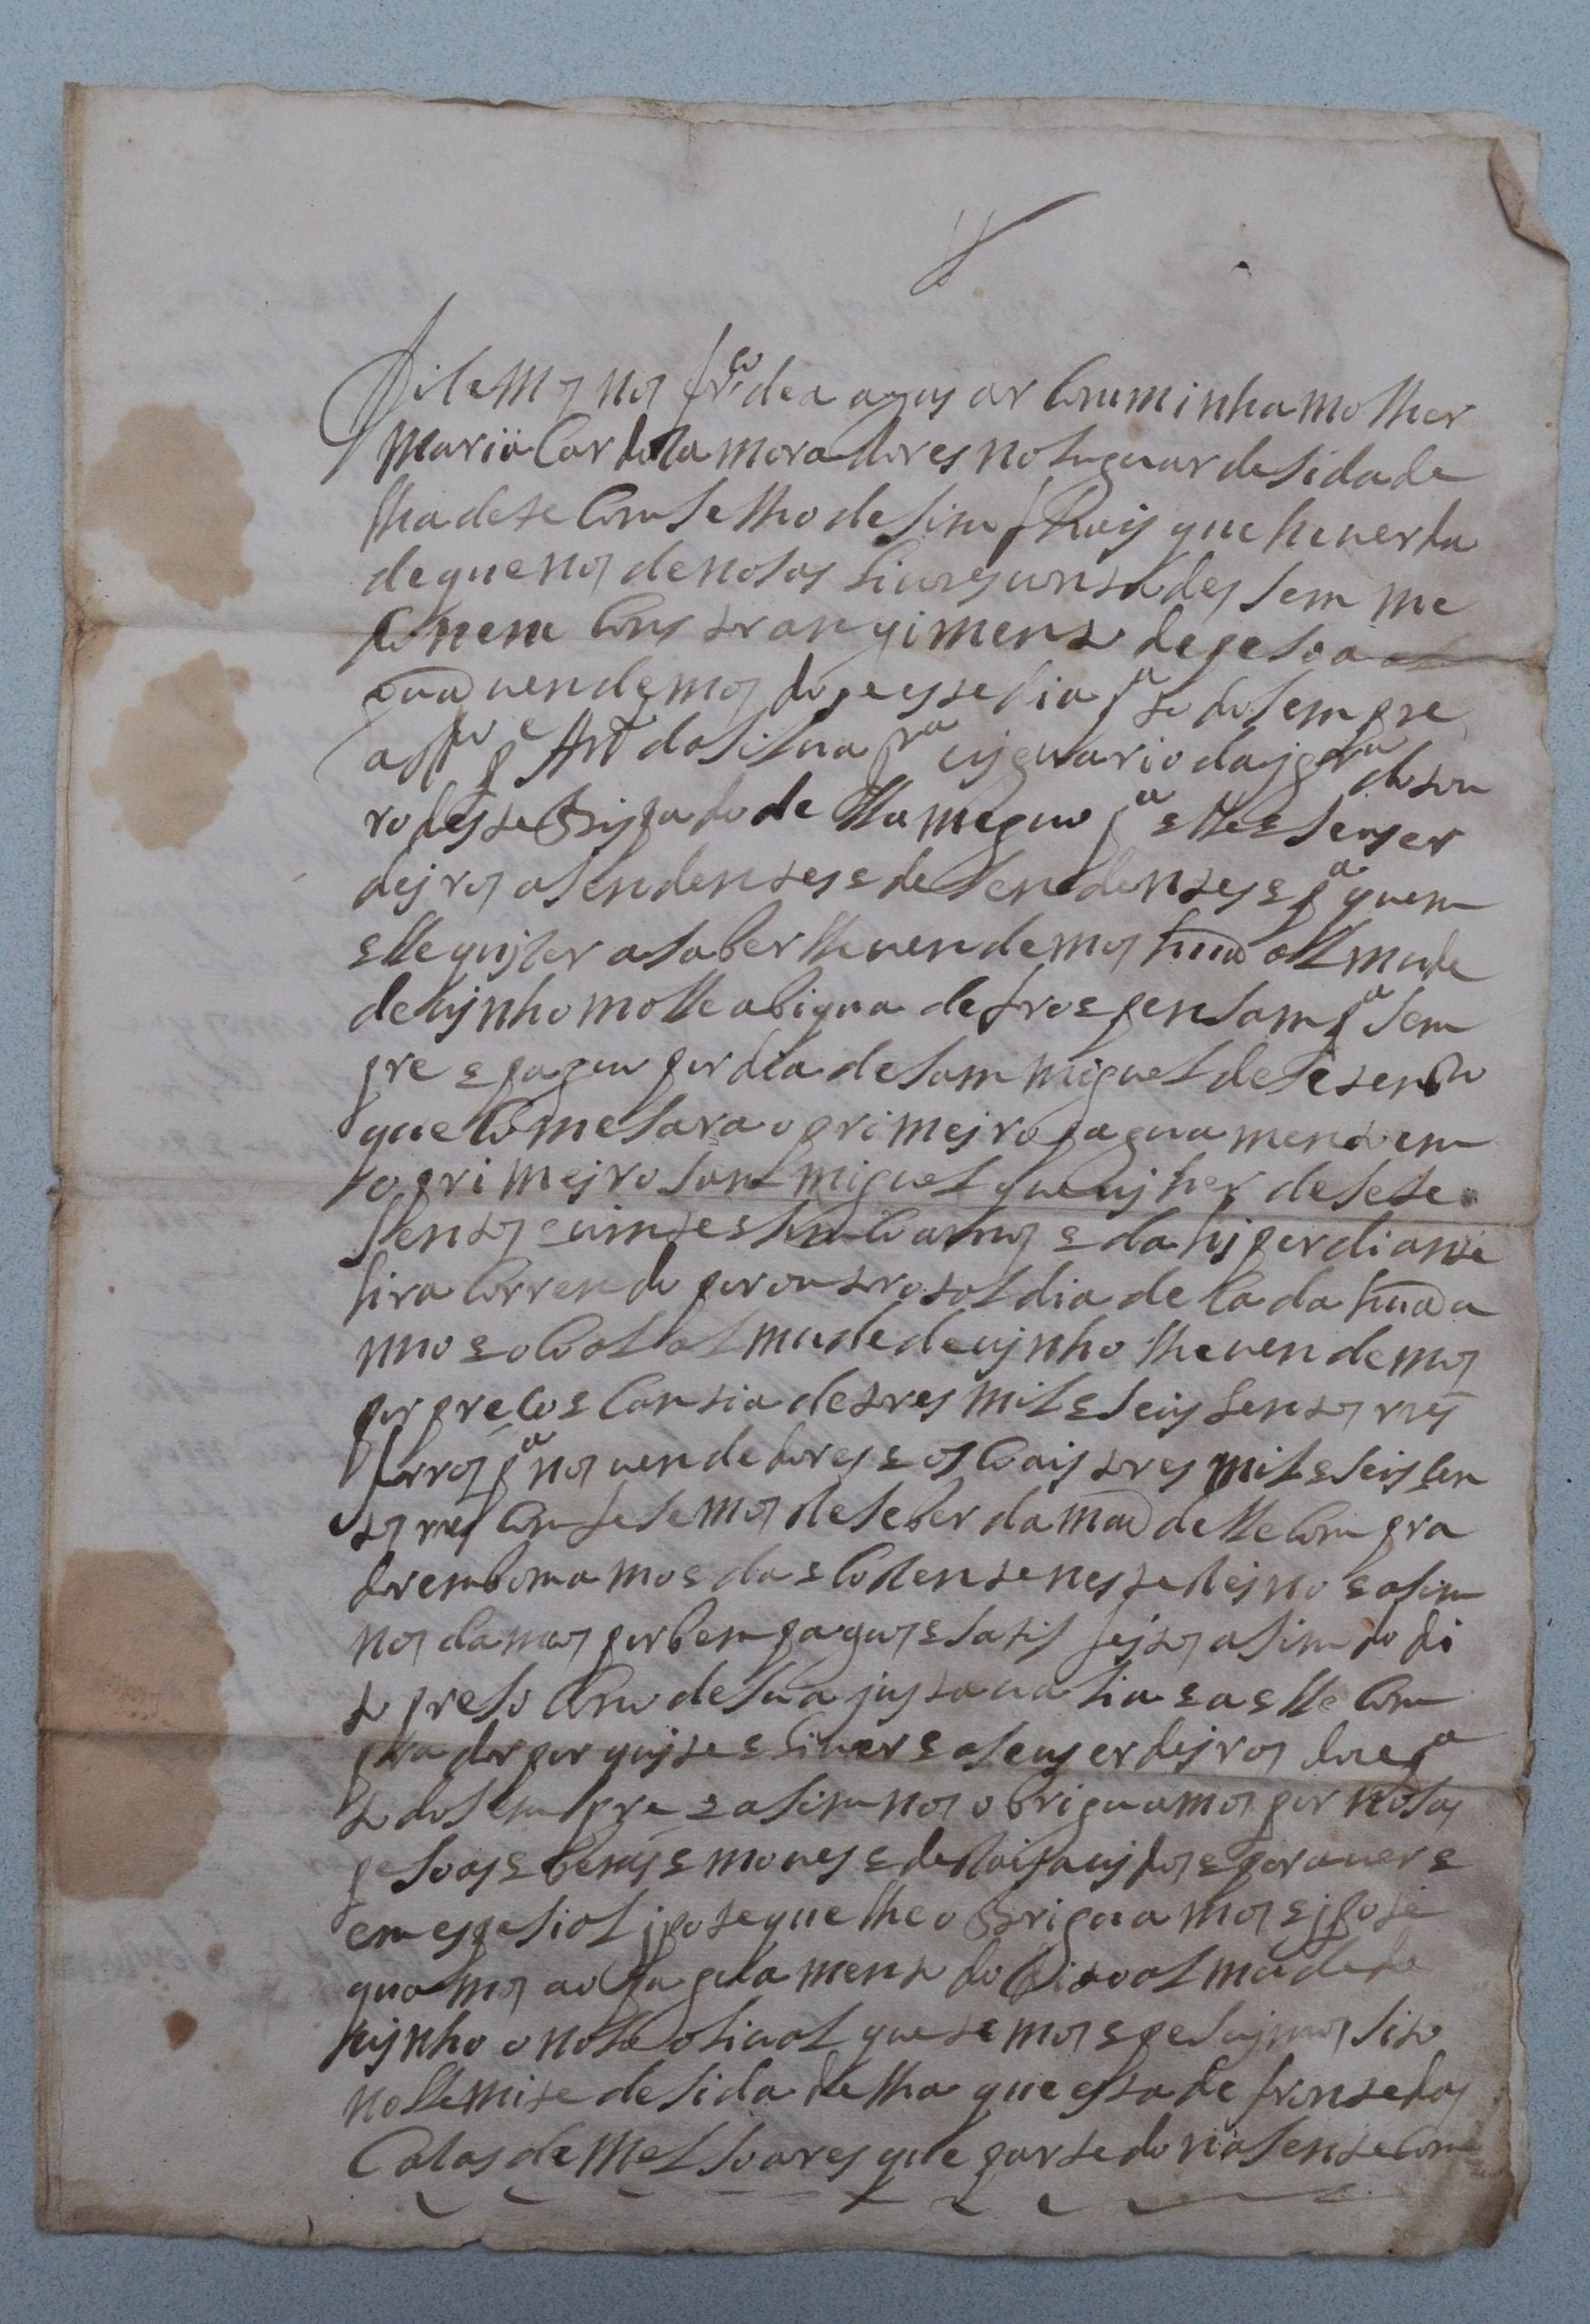 Dizemos nos fr.co de aaguiar Com minha molher
Maria Cardoza moradores no luguar de sidade
lha deste Comselho de sim fhais que he uerda
de que nos de nosas liures uontades sem me
do nem Cons trangimento de pesoa al
gua uendemos do je este dia pa todo sempre
ao pe Anto da silua pra uiguario da igra do sou
ro deste Bispado de llameguo pa elle e seus er
deiros asendentes e desendentes e pa quem
elle quizer a saber lhe uendemos hua allmude
de uinho molle a biqua de foro e pensam pa sem
pre e pago por dia de sam miguel de setenbro
que Comesara o primeiro paguamento em
o primeiro sam miguel que uiher de sete
sentos e uinte e sinCo annos e da hi por diante
hira Correndo por outro tal dia de Cada hua a
nno e o Coal almude de uinho lhe uendemos
por preco e Cantia de tres mil e seis sentos reis
forros pa nos uendedores e os Coais tres mil e seis sen
tos reis Comfesemos reseber da mao delle Com pra
dor em boma moeda e Corente neste reino e asim
nos damos por bem pagos e satis feitos asim do di
to preso Como de sua justa ualia e a elle Com
prador por quite e liure e a seus erdeiros doje pa
todo sempre e asim nos obriguamos por nosas
pesoas e bens e moues e de rais auidos e por auer e
em espesial ipoteque lhe obriguamos e ipote
quamos ao paguamento do dito almude de
uinho o noso olival que temos e pesuimos sito
no llemite de sidadelha que esta de fronte das
Cazas de Mel soares que parte do nasente Com